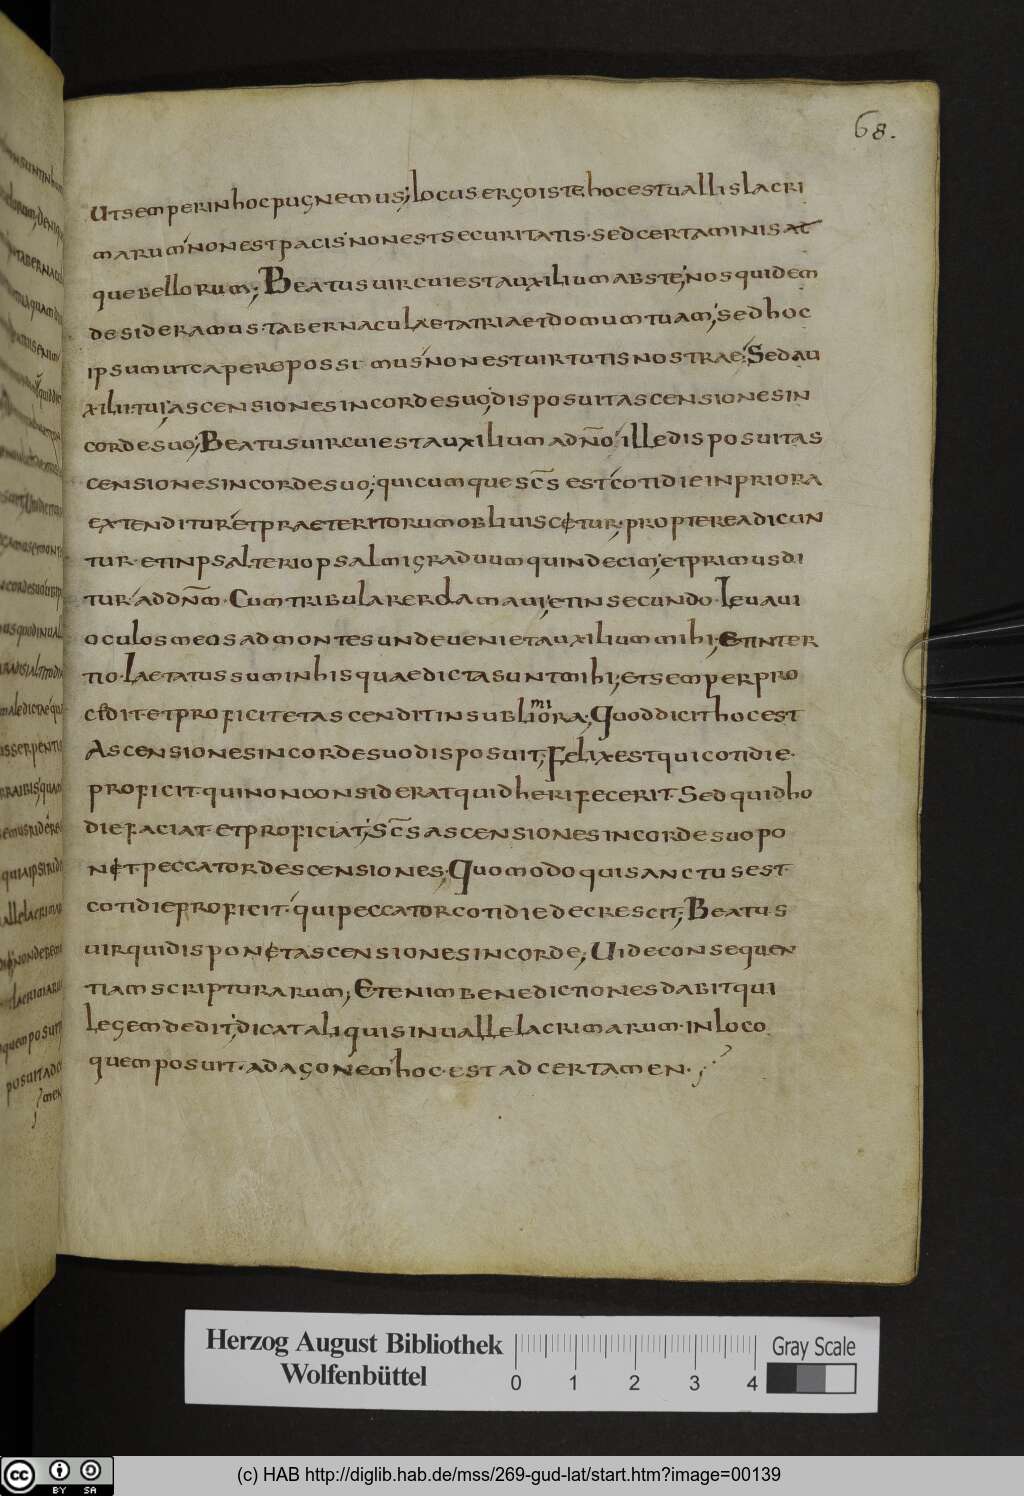 68.
ut semper in hoc pugnemus; locus ergo iste hoc est uallis lacri
marum non est pacis non est securitatis. sed certaminis at
que bellorum; Beatus uir cui est auxilium abs te; nos quidem
desideramus. tabernacula et atria et domum tuam; sed hoc
ipsum ut capere possimus non est uirtutis nostrae; Sed au
xilii tui; ascensiones in corde suo; disposuit ascensiones in
corde suo; Beatus uir cui est auxilium ad nō ille disposuit as
censiones in corde suo; quicumque scs̄ est cotidie in priora
extenditur et praeteritorum obliuiscetur; propterea dicun
tur. et in psalterio psalmi graduum quindecim; et primus di
tur ad dnm̄. Cum tribularer clamaui; et in secundo. Leuaui
oculos meos ad montes unde ueniet auxilium mihi; Et in ter
tio. Laetatus sum in his quae dicta sunt mihi; et semper pro
cedit. et proficit et ascendit in subli
mi
ora; Quod dicit hoc est
Ascensiones in corde suo disposuit; Felix est qui cotidie.
proficit. qui non considerat quid heri fecerit. Sed quid ho
die faciat. et proficiat; Scs̄ ascensiones in corde suo po
net. peccator descensiones; Quomodo qui sanctus est.
cotidie proficit. qui peccator cotidie decrescit; Beatus
uir qui disponet ascensiones in corde; Uide consequen
tiam scripturarum; Etenim benedictiones dabit qui
legem dedit; dicat aliquis in ualle lacrimarum. in loco
quem posuit. ad agonem hoc. est ad certamen.
Herzog August Bibliothek
Wolfenbüttel
0 1 2 3 4
Gray Scale
cc BY SA
(c) HAB http://diglib.hab.de/mss/269-gud-lat/start.htm?image=00139